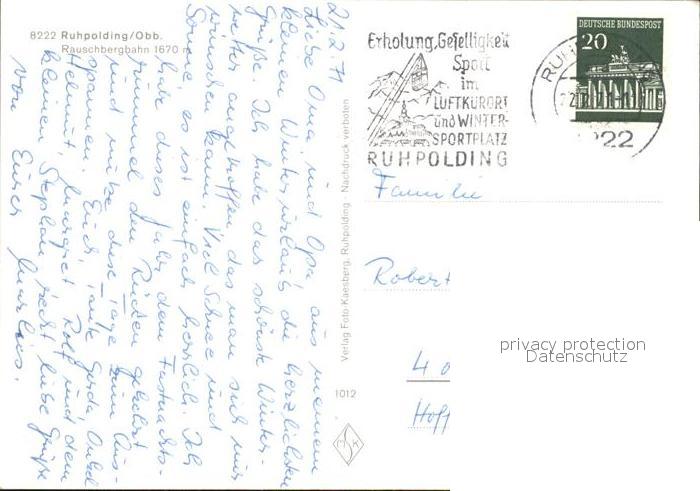 8222 Ruhpolding/Obb.
Rauschbergbahn 1670 m
21.2.71
Liebe Oma und Opa aus meinem
kleinen Winterurlaub die herzlichsten
Grüße. Ich habe das schönste Winter-
wetter angetroffen, das man sich nur
wünschen kann. Viel Schnee und
Sonne, es ist einfach herrlich. Ich
habe dieses Jahr dem Fastnachts-
rummel den Rücken gekehrt
und nütze diese Tage zum Aus-
spannen. Euch, Tante Gerda, Onkel
Helmut, Margret, Rolf und dem
kleinen Stephan recht liebe Grüße
von Eurer Marlies.
Verlag Foto-Kaesberg, Ruhpolding Nachdruck verboten
1012
Erholung, Geselligkeit
Sport
im
LUFTKURORT
und WINTER-
SPORTPLATZ
RUHPOLDING
DEUTSCHE BUNDESPOST
20
Familie
Robert
40
Hoff
privacy protection
Datenschutz